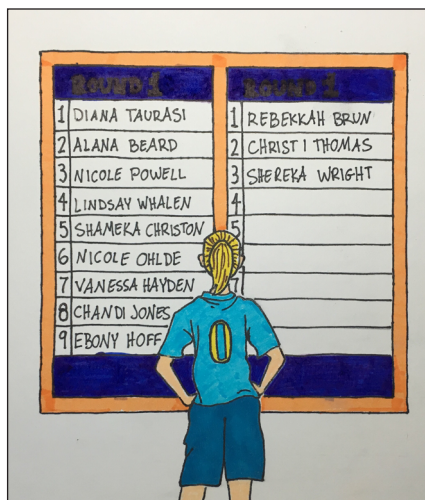 ROUND 1
1 DIANA TAURASI
2 ALANA BEARD
3 NICOLE POWELL
4 LINDSAY WHALEN
5 SHAMEKA CHRISTON
6 NICOLE OHLDE
7 VANESSA HAYDEN
8 CHANDI JONES
9 EBONY HOFF
ROUND
1 REBEKKAH BRUN
2 CHRISTI THOMAS
3 SHEREKA WRIGHT
4
5
7
0